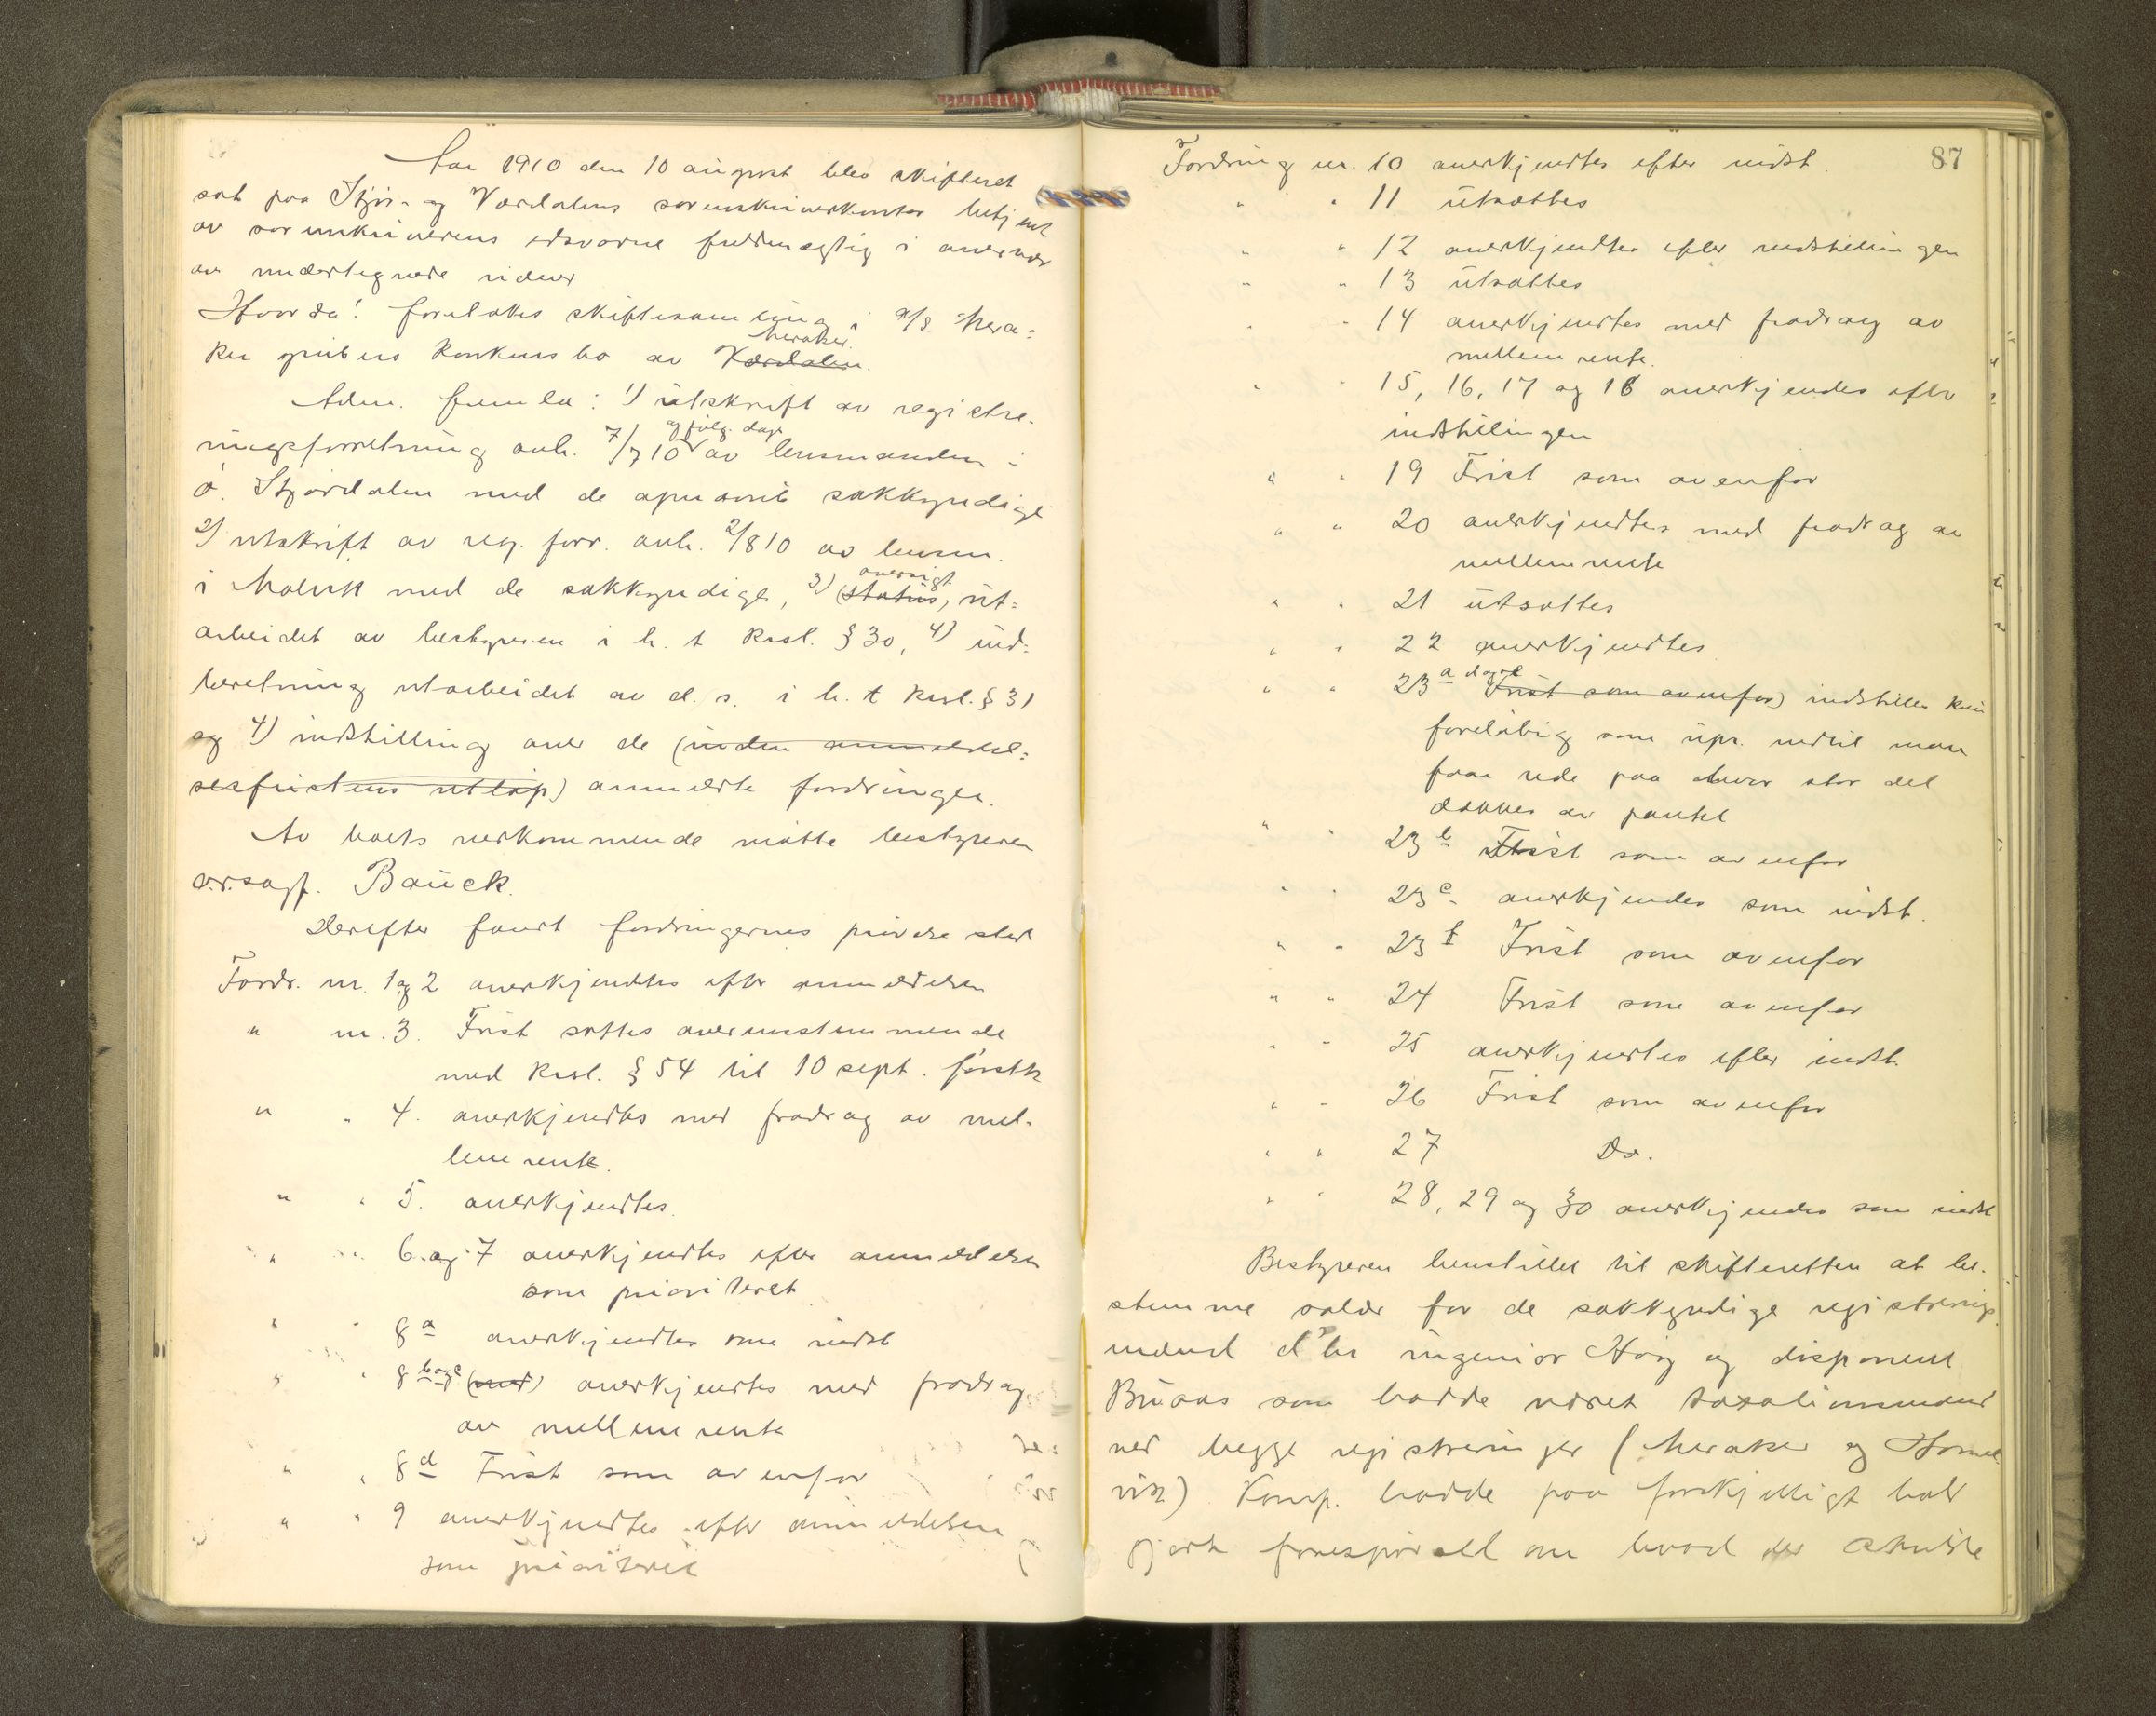 Aar 1910 den 10 august blev skifteret
sat paa Stjør- og Værdalens sorenskriverkontor betjent
av sorenskriverens edsvorne fuldmægtig i overvær
av undertegnede vidner
Hvorda! foretokes skiftesamling i a/s. Mera=
ker grubers konkursbo av Meraker.
Værdalen.
Adm. freml: 1) utskrift av registre-
ringsforretning avh. 7/7 10 og følg. dage av lensmanden i
ø. Stjørdalen med de opnævnte sakkyndige
2) utskrift av reg. forr. avh. 2/8 10 av lensm.
i Malvik med de sakkyndige, 3) (status) oversigt, ut=
arbeidet av bestyreren i h. t. kksl. § 30, 4) ind=
beretning utarbeidet av d. s. i h. t. kksl. § 31
og 4) indstilling over de (inden anmeldel=
sesfristens utløp) anmeldte fordringer.
Av boets vedkommende møtte bestyreren
o.r.sagf. Bauck.
Derefter fandt fordringernes prøvelse sted
Fordr. nr. 1 og 2 anerkjendtes efter anmeldelsen
" nr. 3. Frist sattes overensstemmende
med kksl. § 54 til 10 sept. førstk
" " 4. anerkjendtes med fradrag av mel-
lemrente.
" " 5. anerkjendtes.
" " 6 og 7 anerkjendtes efter anmeldelsen
som prioriteret
" " 8 a anerkjendtes som indst
" " 8 b og c (med) anerkjendtes med fradrag
av mellemrente
" " 8 d Frist som ovenfor
" " 9 anerkjendtes efter anmeldelsen
som prioriteret
87
Fordring nr. 10 anerkjendtes efter indst.
" " 11 utsattes
" " 12 anerkjendtes efter indstillingen
" " 13 utsattes
" " 14 anerkjendtes med fradrag av
mellemrente.
" " 15, 16, 17 og 18 anerkjendes efter
indstillingen
" " 19 Frist som ovenfor
" " 20 anerkjendtes med fradrag av
mellemrente
" " 21 utsattes
" " 22 anerkjendtes
" " 23 a (Frist som ovenfor) indstilles kun
foreløbig som upr. indtil man
faar rede paa hvor stor del
dækkes av pantet
" " 23 b Frist som ovenfor
" " 23 c anerkjendes som indst.
" " 23 f Frist som ovenfor
" " 24 Frist som ovenfor
" " 25 anerkjendtes efter indst.
" " 26 Frist som ovenfor
" " 27 Do.
" " 28, 29 og 30 anerkjendes som indst
Bestyreren henstillet til skifteretten at be-
stemme salær for de sakkyndige registrerings
mænd d'hr ingeniør Høy og disponent
Buaas som hadde været taxationsmænd
ved begge registreringer (Meraker og Hommel
vik) Komp. hadde paa forskjelligt hold
gjort forespørsel om hvad der skulde